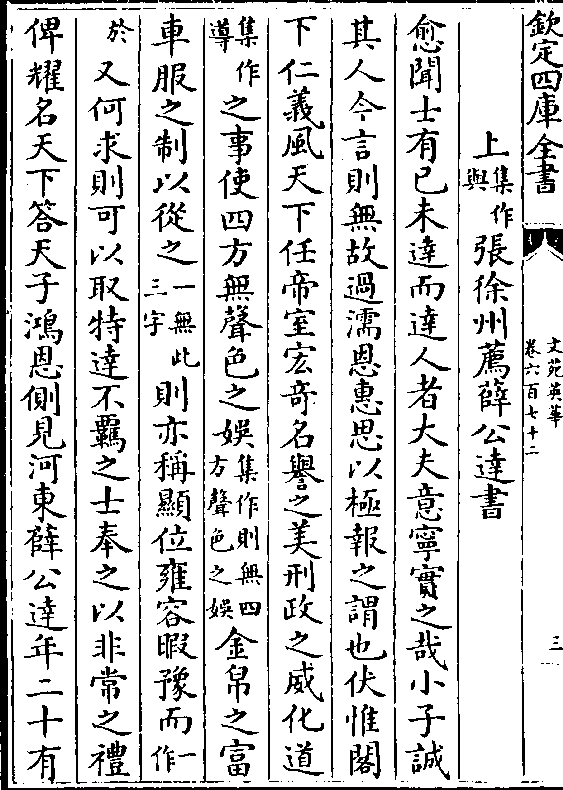 欽定四庫全書
文苑英華
卷六百七十二
三
上集作與張徐州薦薛公達書
愈聞士有已未達而達人者大夫意寧實之哉小子誠
其人今言則無故過濡恩惠思以極報之謂也伏惟閣
下仁義風天下任帝室宏奇名譽之美刑政之威化道
集作導之事使四方無聲色之娛集作則無四方聲色之娛金帛之富
車服之制以從之一無此三字則亦稱顯位雍容暇豫而一作
於又何求則可以取特達不羈之士奉之以非常之禮
俾耀名天下答天子鴻恩側見河東薛公達年二十有